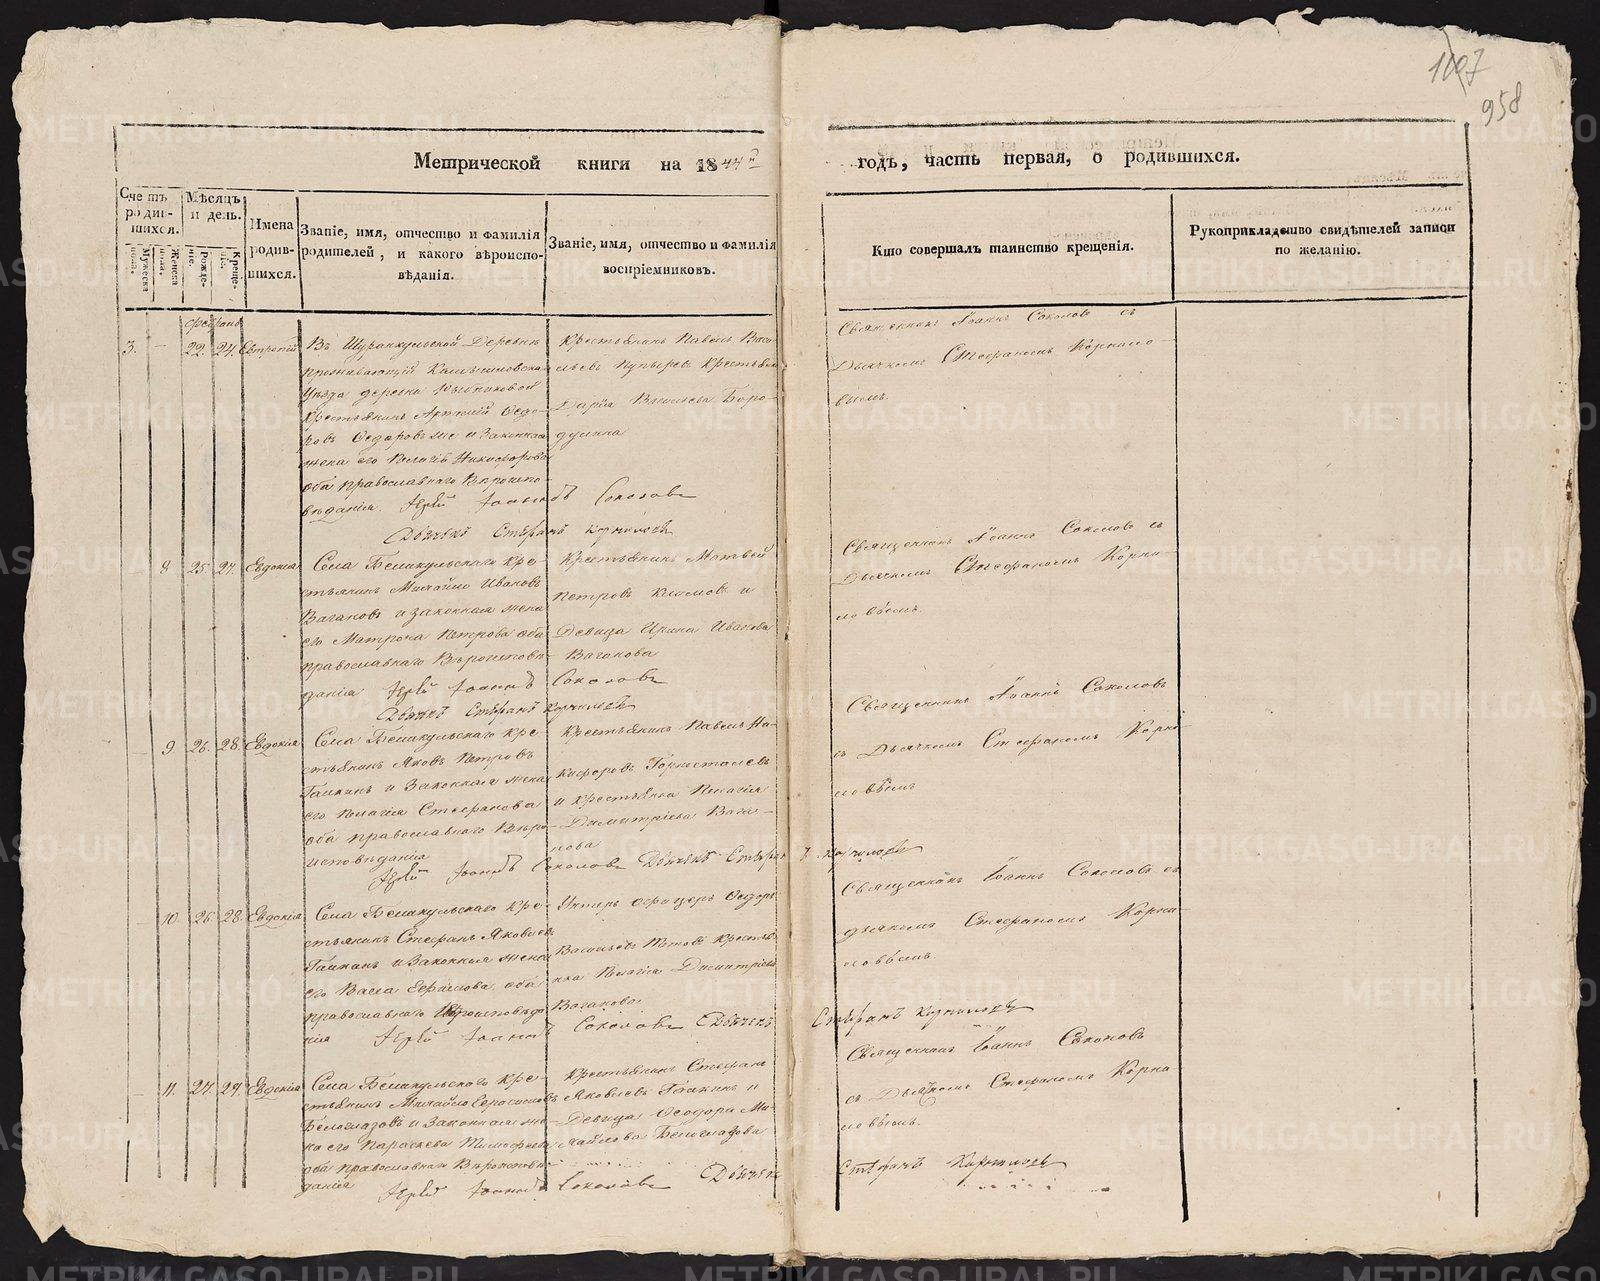 1107
958
Метрической книги на 1844й
годъ, часть первая, о родившихся.
Счетъ родившихся.
Мужеска пола.
Женска пола.
Мѣсяцъ и день.
Рожденіе.
Крещеніе.
Имена родившихся.
Званіе, имя, отчество и фамилія родителей, и какого вѣроисповѣданія.
Званіе, имя, отчество и фамилія воспріемниковъ.
Кто совершалъ таинство крещенія.
Рукоприкладство свидѣтелей записи по желанію.
Февраль
3. — 22. 24.
Въ Деревнѣ
проживающій
Уѣзда деревни
Крестьянинъ Ѳедо-
ровъ Ѳедоровъ же и Законная
жена его Никифорова
оба православнаго Вѣроиспо-
вѣданія. Іерей Іоаннъ Соколовъ
Дьячекъ Стефанъ Корниловъ
Крестьянинъ Павелъ Васи-
льевъ Пупыревъ Крестьян
Дарія Васильева Боро-
дулина
Священникъ Іоаннъ Соколовъ съ
Дьячкомъ Стефаномъ Корнило-
вымъ.
8 25. 27. Евдокія
Села Белякульскаго Кре-
стьянинъ Михайло Ивановъ
Вагановъ и законная жена
его Матрона Петрова оба
православнаго Вѣроисповѣ-
данія Іерей Іоаннъ Соколовъ
Дьячекъ Стефанъ Корниловъ
Крестьянинъ Матвей
Петровъ Климовъ и
Девица Ирина Иванова
Ваганова
Священникъ Іоаннъ Соколовъ съ
Дьячкомъ Стефаномъ Корни-
ловымъ.
9. 26. 28. Евдокія
Села Белякульскаго Кре-
стьянинъ Яковъ Петровъ
Галкинъ и Законная жена
его Пелагія Стефанова
оба православнаго Вѣро-
исповѣданія
Іерей Іоаннъ Соколовъ Дьячекъ Стефанъ Корниловъ
Крестьянинъ Павелъ Ни-
кифоровъ Горносталевъ
и крестьянка Пелагія
Димитріева Вага-
нова
Священникъ Іоаннъ Соколовъ
съ Дьячкомъ Стефаномъ Корни
ловымъ
10. 26. 28. Евдокія
Села Белякульскаго Кре-
стьянинъ Стефанъ Яковлевъ
Галкинъ и Законная жена
его оба
православнаго Вѣроисповѣда
нія Іерей Іоаннъ Соколовъ Дьячекъ Стефанъ Корниловъ
Унтеръ офицеръ Ѳедоръ
Васильевъ Титовъ Крестьян
ка Пелагія Димитріева
Ваганова
Священникъ Іоаннъ Соколовъ съ
дьячкомъ Стефаномъ Корни-
ловымъ.
11. 27. 29. Евдокія
Села Белякульскаго Кре-
стьянинъ Михайло Герасимовъ
Белоглазовъ и Законная же-
на его Параскева Тимофеева
оба православнаго Вѣроисповѣ-
данія Іерей Іоаннъ Соколовъ Дьячекъ Стефанъ Корниловъ
Крестьянинъ Стефанъ
Яковлевъ Галкинъ и
Девица Ѳеодора Ми-
хайлова Белоглазова
Священникъ Іоаннъ Соколовъ
съ Дьячкомъ Стефаномъ Корни
ловымъ.
METRIKI.GASO-URAL.RU